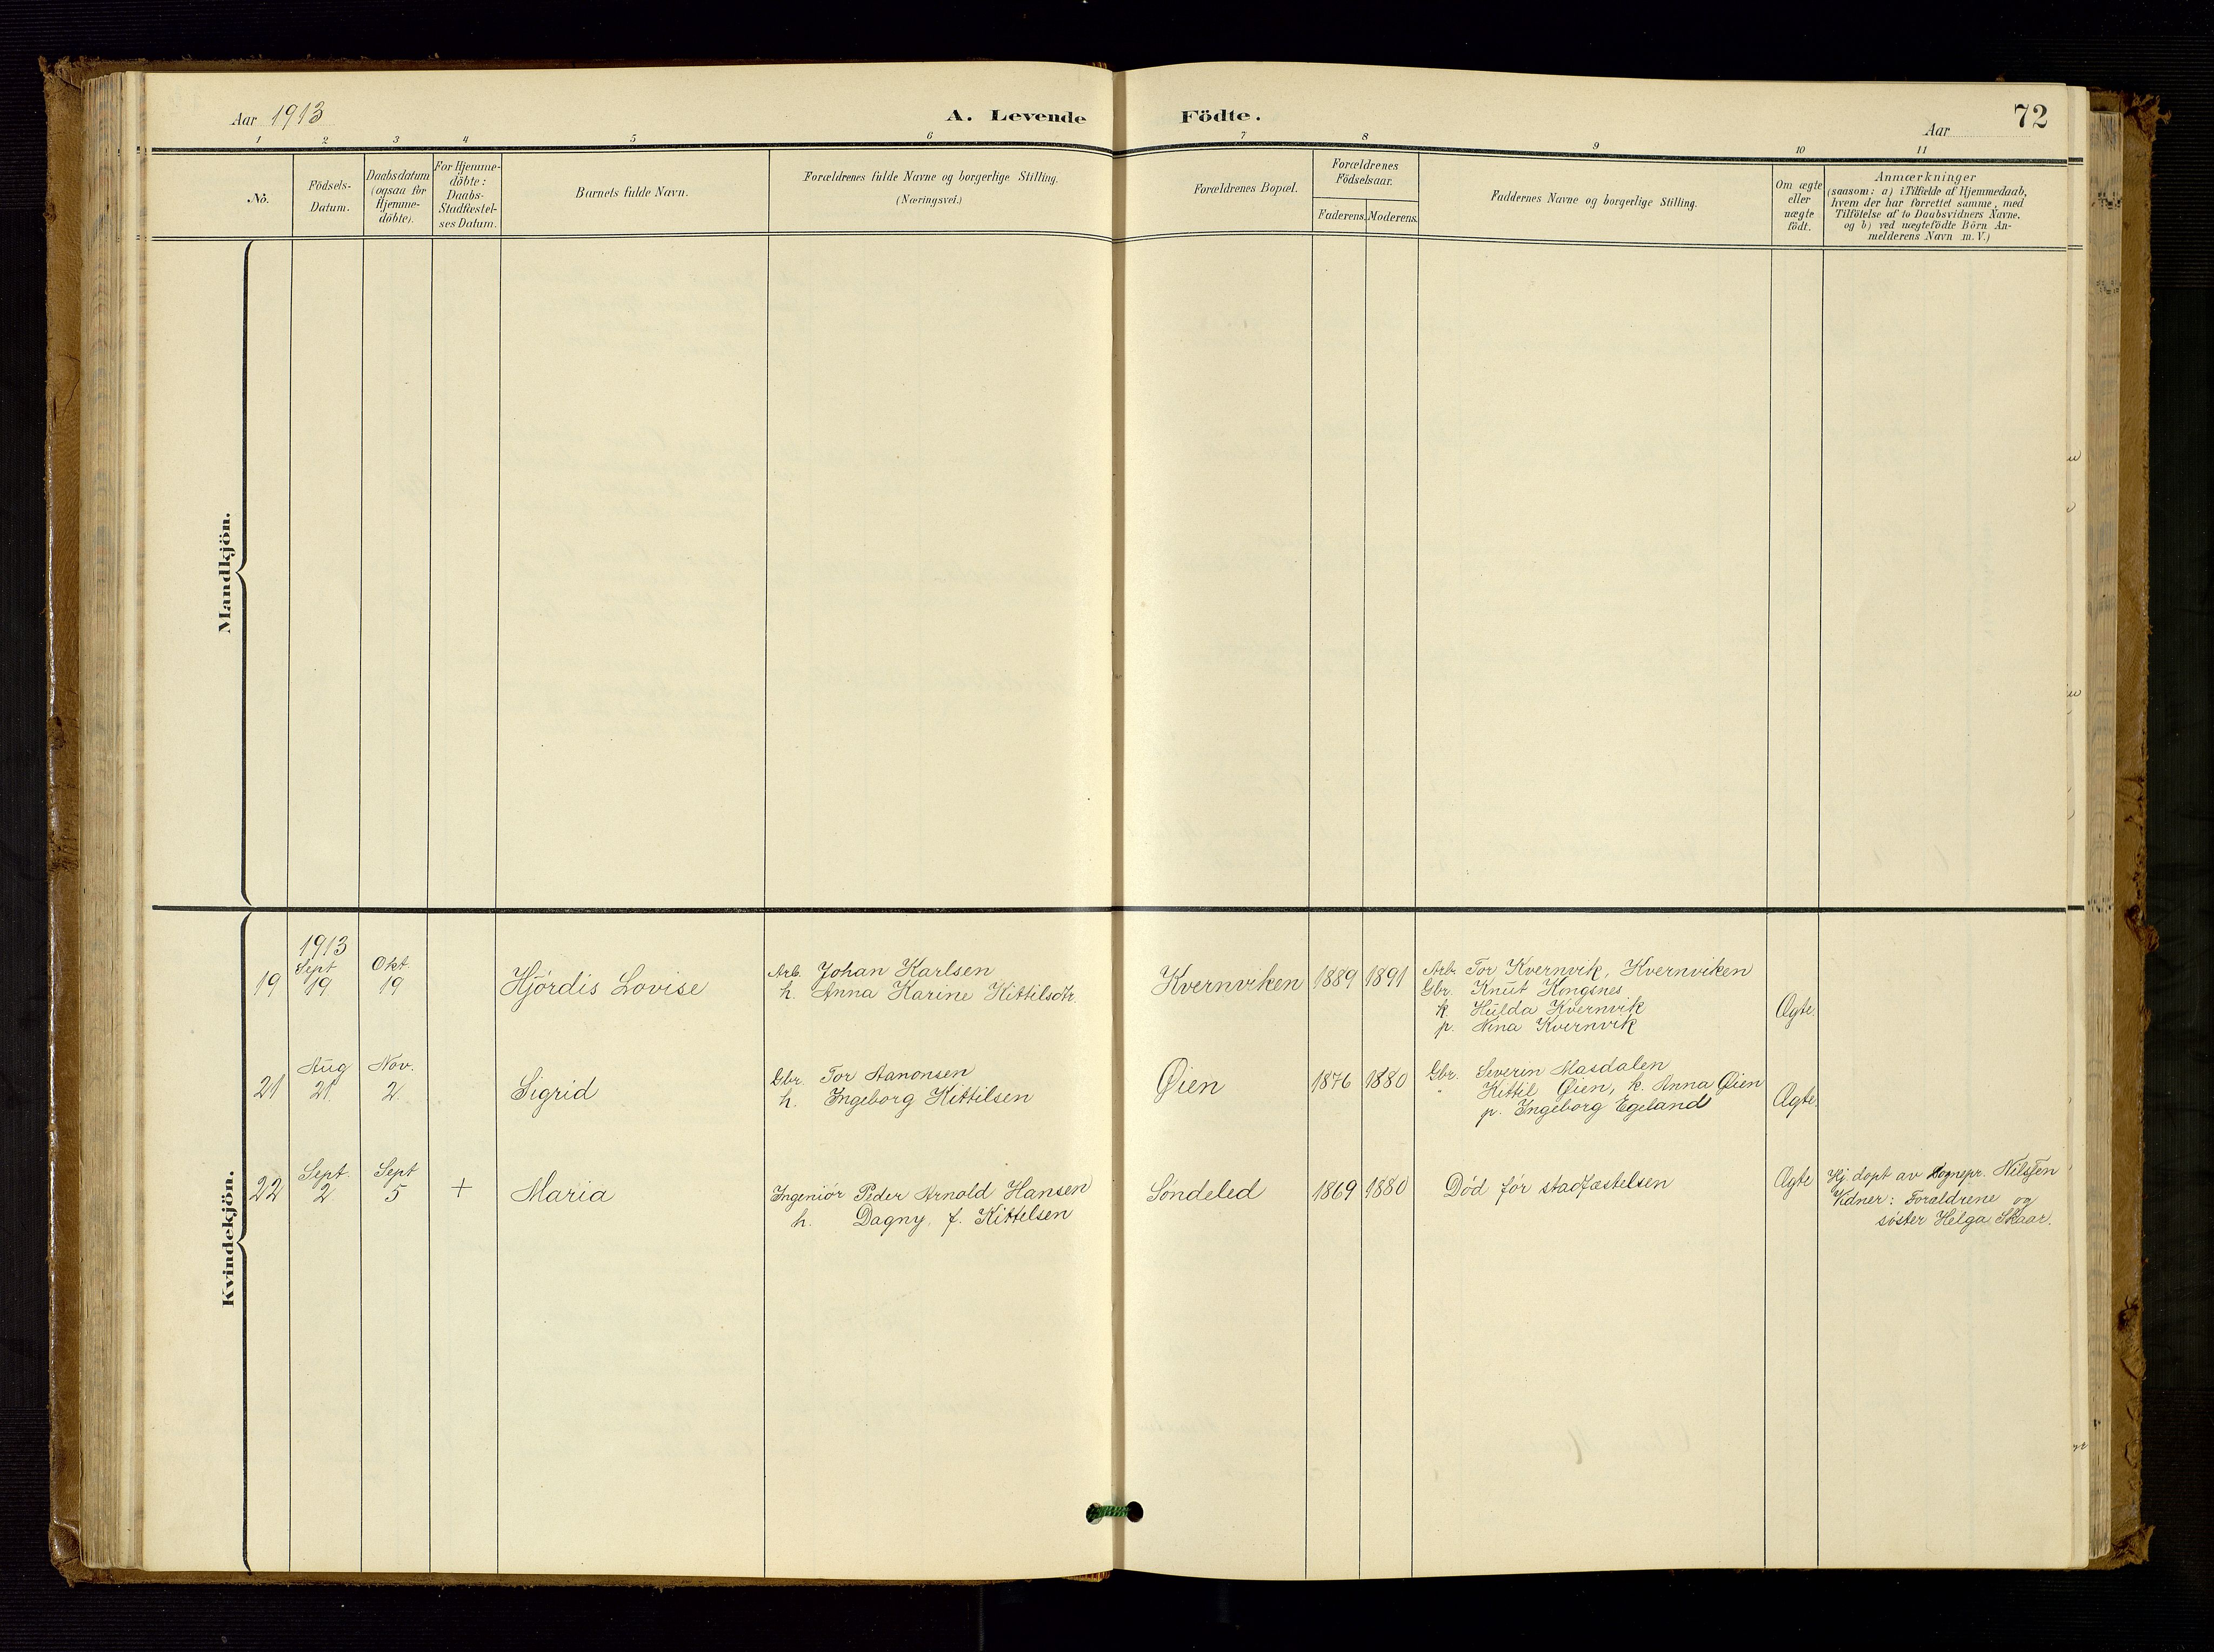 Aar 1913
A. Levende
Födte.
Aar
72
1 2 3 4 5 6 7 8 9 10 11
No.
Födsels-
Datum.
Daabsdatum
(ogsaa for
Hjemme-
döbte).
For Hjemme-
döbte:
Daabs-
Stadfæstel-
ses Datum.
Barnets fulde Navn.
Forældrenes fulde Navne og borgerlige Stilling.
(Næringsvei.)
Forældrenes Bopæl.
Forældrenes
Födselsaar.
Faderens.
Moderens.
Faddernes Navne og borgerlige Stilling.
Om ægte
eller
uægte
födt.
Anmærkninger
(saasom: a) i Tilfælde af Hjemmedaab,
hvem der har forrettet samme, med
Tilföielse af to Daabsvidners Navne.
og b) ved uægtefödte Börn An-
melderens Navn m. V.)
Mandkjön.
Kvindekjön.
1913
19
Sept
19
Okt.
19
Hjördis Lovise
Arb. Johan Karlsen
h. Anna Karine Kittilsdtr.
Kvernviken
1889
1891
Arb. Tor Kvernvik, Kvernviken
Gbr. Knut Kongsnes
k. Hulda Kvernvik
p. Nina Kvernvik
Ægte.
21
Aug
21.
Nov.
2.
Sigrid
Gbr. Tor Aanonsen
h. Ingeborg Kittilsen
Øien
1876
1880
Gbr. Severin Masdalen
" Kittil Øien, k. Anna Øien
p. Ingeborg Egeland
Ægte.
22
Sept.
2
Sept
5
+
Maria
Ingeniør Peder Arnold Hansen
h. Dagny, f. Kittelsen
Søndeled
1869
1880
Död för stadfæstelsen
Ægte
Hj. döpt av Sognepr. Nilssen
Vidner: Forældrene og
söster Helga Skaar.